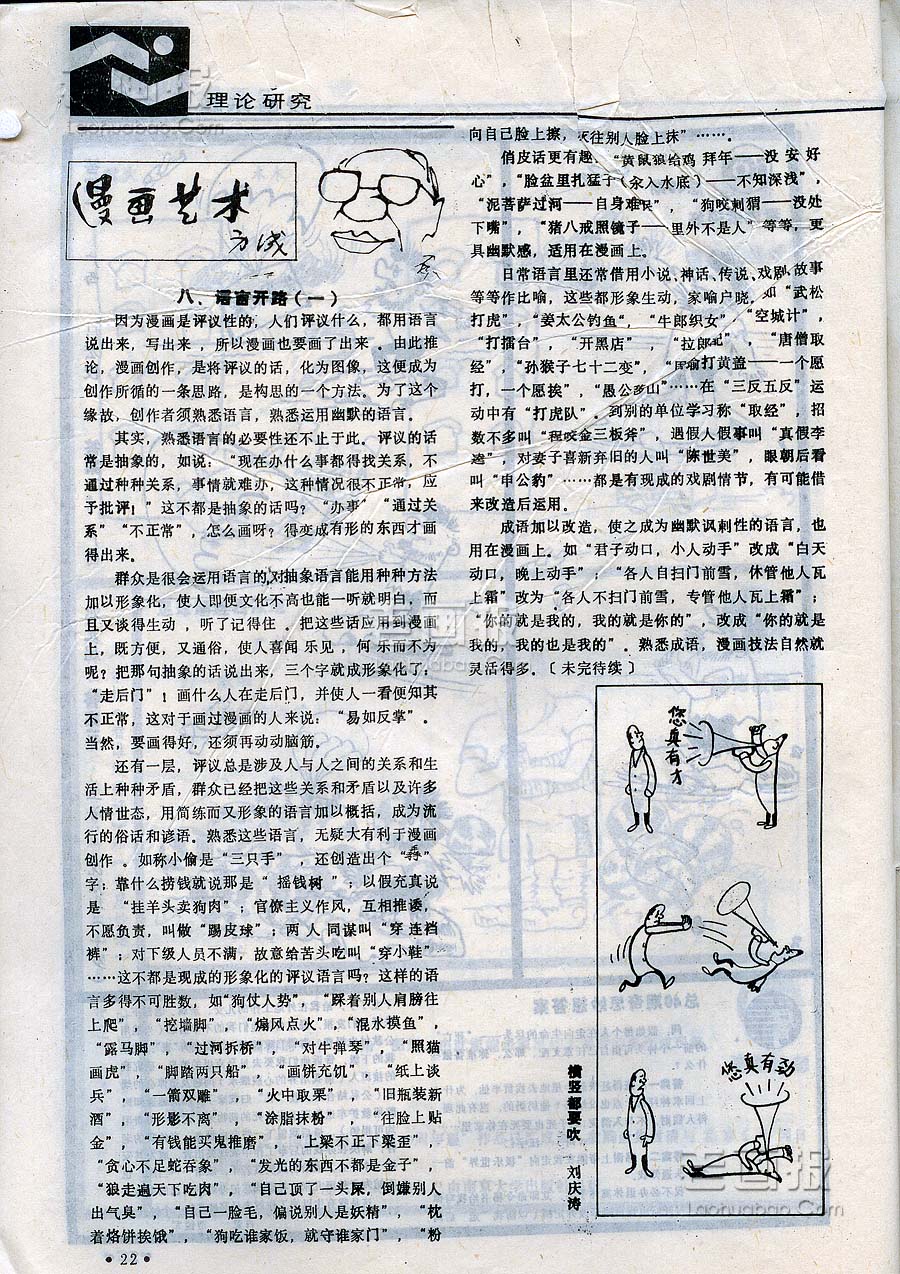 理论研究
漫画艺术
方成
八、语言开路(一)
因为漫画是评议性的，人们评议什么，都用语言
说出来，写出来，所以漫画也要画了出来。由此推
论，漫画创作，是将评议的话，化为图像，这便成为
创作所循的一条思路，是构思的一个方法。为了这个
缘故，创作者须熟悉语言，熟悉运用幽默的语言。
其实，熟悉语言的必要性还不止于此。评议的话
常是抽象的，如说：“现在办什么事都得找关系，不
通过种种关系，事情就难办，这种情况很不正常，应
予批评！”这不都是抽象的话吗？“办事”“通过关
系”“不正常”，怎么画呀？得变成有形的东西才画
得出来。
群众是很会运用语言的，对抽象语言能用种种方法
加以形象化，使人即便文化不高也能一听就明白，而
且又谈得生动，听了记得住。把这些话应用到漫画
上，既方便，又通俗，使人喜闻乐见，何乐而不为
呢？把那句抽象的话说出来，三个字就成形象化了：
“走后门”！画什么人在走后门，并使人一看便知其
不正常，这对于画过漫画的人来说：“易如反掌”。
当然，要画得好，还须再动动脑筋。
还有一层，评议总是涉及人与人之间的关系和生
活上种种矛盾，群众已经把这些关系和矛盾以及许多
人情世态，用简练而又形象的语言加以概括，成为流
行的俗话和谚语。熟悉这些语言，无疑大有利于漫画
创作。如称小偷是“三只手”，还创造出个“掱”
字；靠什么捞钱就说那是“摇钱树”；以假充真说
是“挂羊头卖狗肉”；官僚主义作风，互相推诿，
不愿负责，叫做“踢皮球”；两人同谋叫“穿连裆
裤”；对下级人员不满，故意给苦头吃叫“穿小鞋”
……这不都是现成的形象化的评议语言吗？这样的语
言多得不可胜数，如“狗仗人势”，“踩着别人肩膀往
上爬”，“挖墙脚”，“煽风点火”，“混水摸鱼”，
“露马脚”，“过河拆桥”，“对牛弹琴”，“照猫
画虎”，“脚踏两只船”，“画饼充饥”，“纸上谈
兵”，“一箭双雕”，“火中取栗”，“旧瓶装新
酒”，“形影不离”，“涂脂抹粉”，“往脸上贴
金”，“有钱能买鬼推磨”，“上梁不正下梁歪”，
“贪心不足蛇吞象”，“发光的东西不都是金子”，
“狼走遍天下吃肉”，“自己顶了一头屎，倒嫌别人
出气臭”，“自己一脸毛，偏说别人是妖精”，“枕
着烙饼挨饿”，“狗吃谁家饭，就守谁家门”，“粉
向自己脸上擦，灰往别人脸上抹”……。
俏皮话更有趣，“黄鼠狼给鸡拜年——没安好
心”，“脸盆里扎猛子（氽入水底）——不知深浅”，
“泥菩萨过河——自身难保”，“狗咬刺猬——没处
下嘴”，“猪八戒照镜子——里外不是人”等等，更
具幽默感，适用在漫画上。
日常语言里还常借用小说、神话、传说、戏剧、故事
等等作比喻，这些都形象生动，家喻户晓，如“武松
打虎”，“姜太公钓鱼”，“牛郎织女”，“空城计”，
“打擂台”，“开黑店”，“拉郎配”，“唐僧取
经”，“孙猴子七十二变”，“周瑜打黄盖——一个愿
打，一个愿挨”，“愚公移山”……在“三反五反”运
动中有“打虎队”。到别的单位学习称“取经”，招
数不多叫“程咬金三板斧”，遇假人假事叫“真假李
逵”，对妻子喜新弃旧的人叫“陈世美”，眼朝后看
叫“申公豹”……都是有现成的戏剧情节，有可能借
来改造后运用。
成语加以改造，使之成为幽默讽刺性的语言，也
用在漫画上。如“君子动口，小人动手”改成“白天
动口，晚上动手”；“各人自扫门前雪，休管他人瓦
上霜”改为“各人不扫门前雪，专管他人瓦上霜”；
“你的就是我的，我的就是你的”，改成“你的就是
我的，我的也是我的”。熟悉成语，漫画技法自然就
灵活得多。〔未完待续〕
您真有才
您真有劲
横竖都要吹
刘庆涛
·22·
老画报
Laohuabao.Com